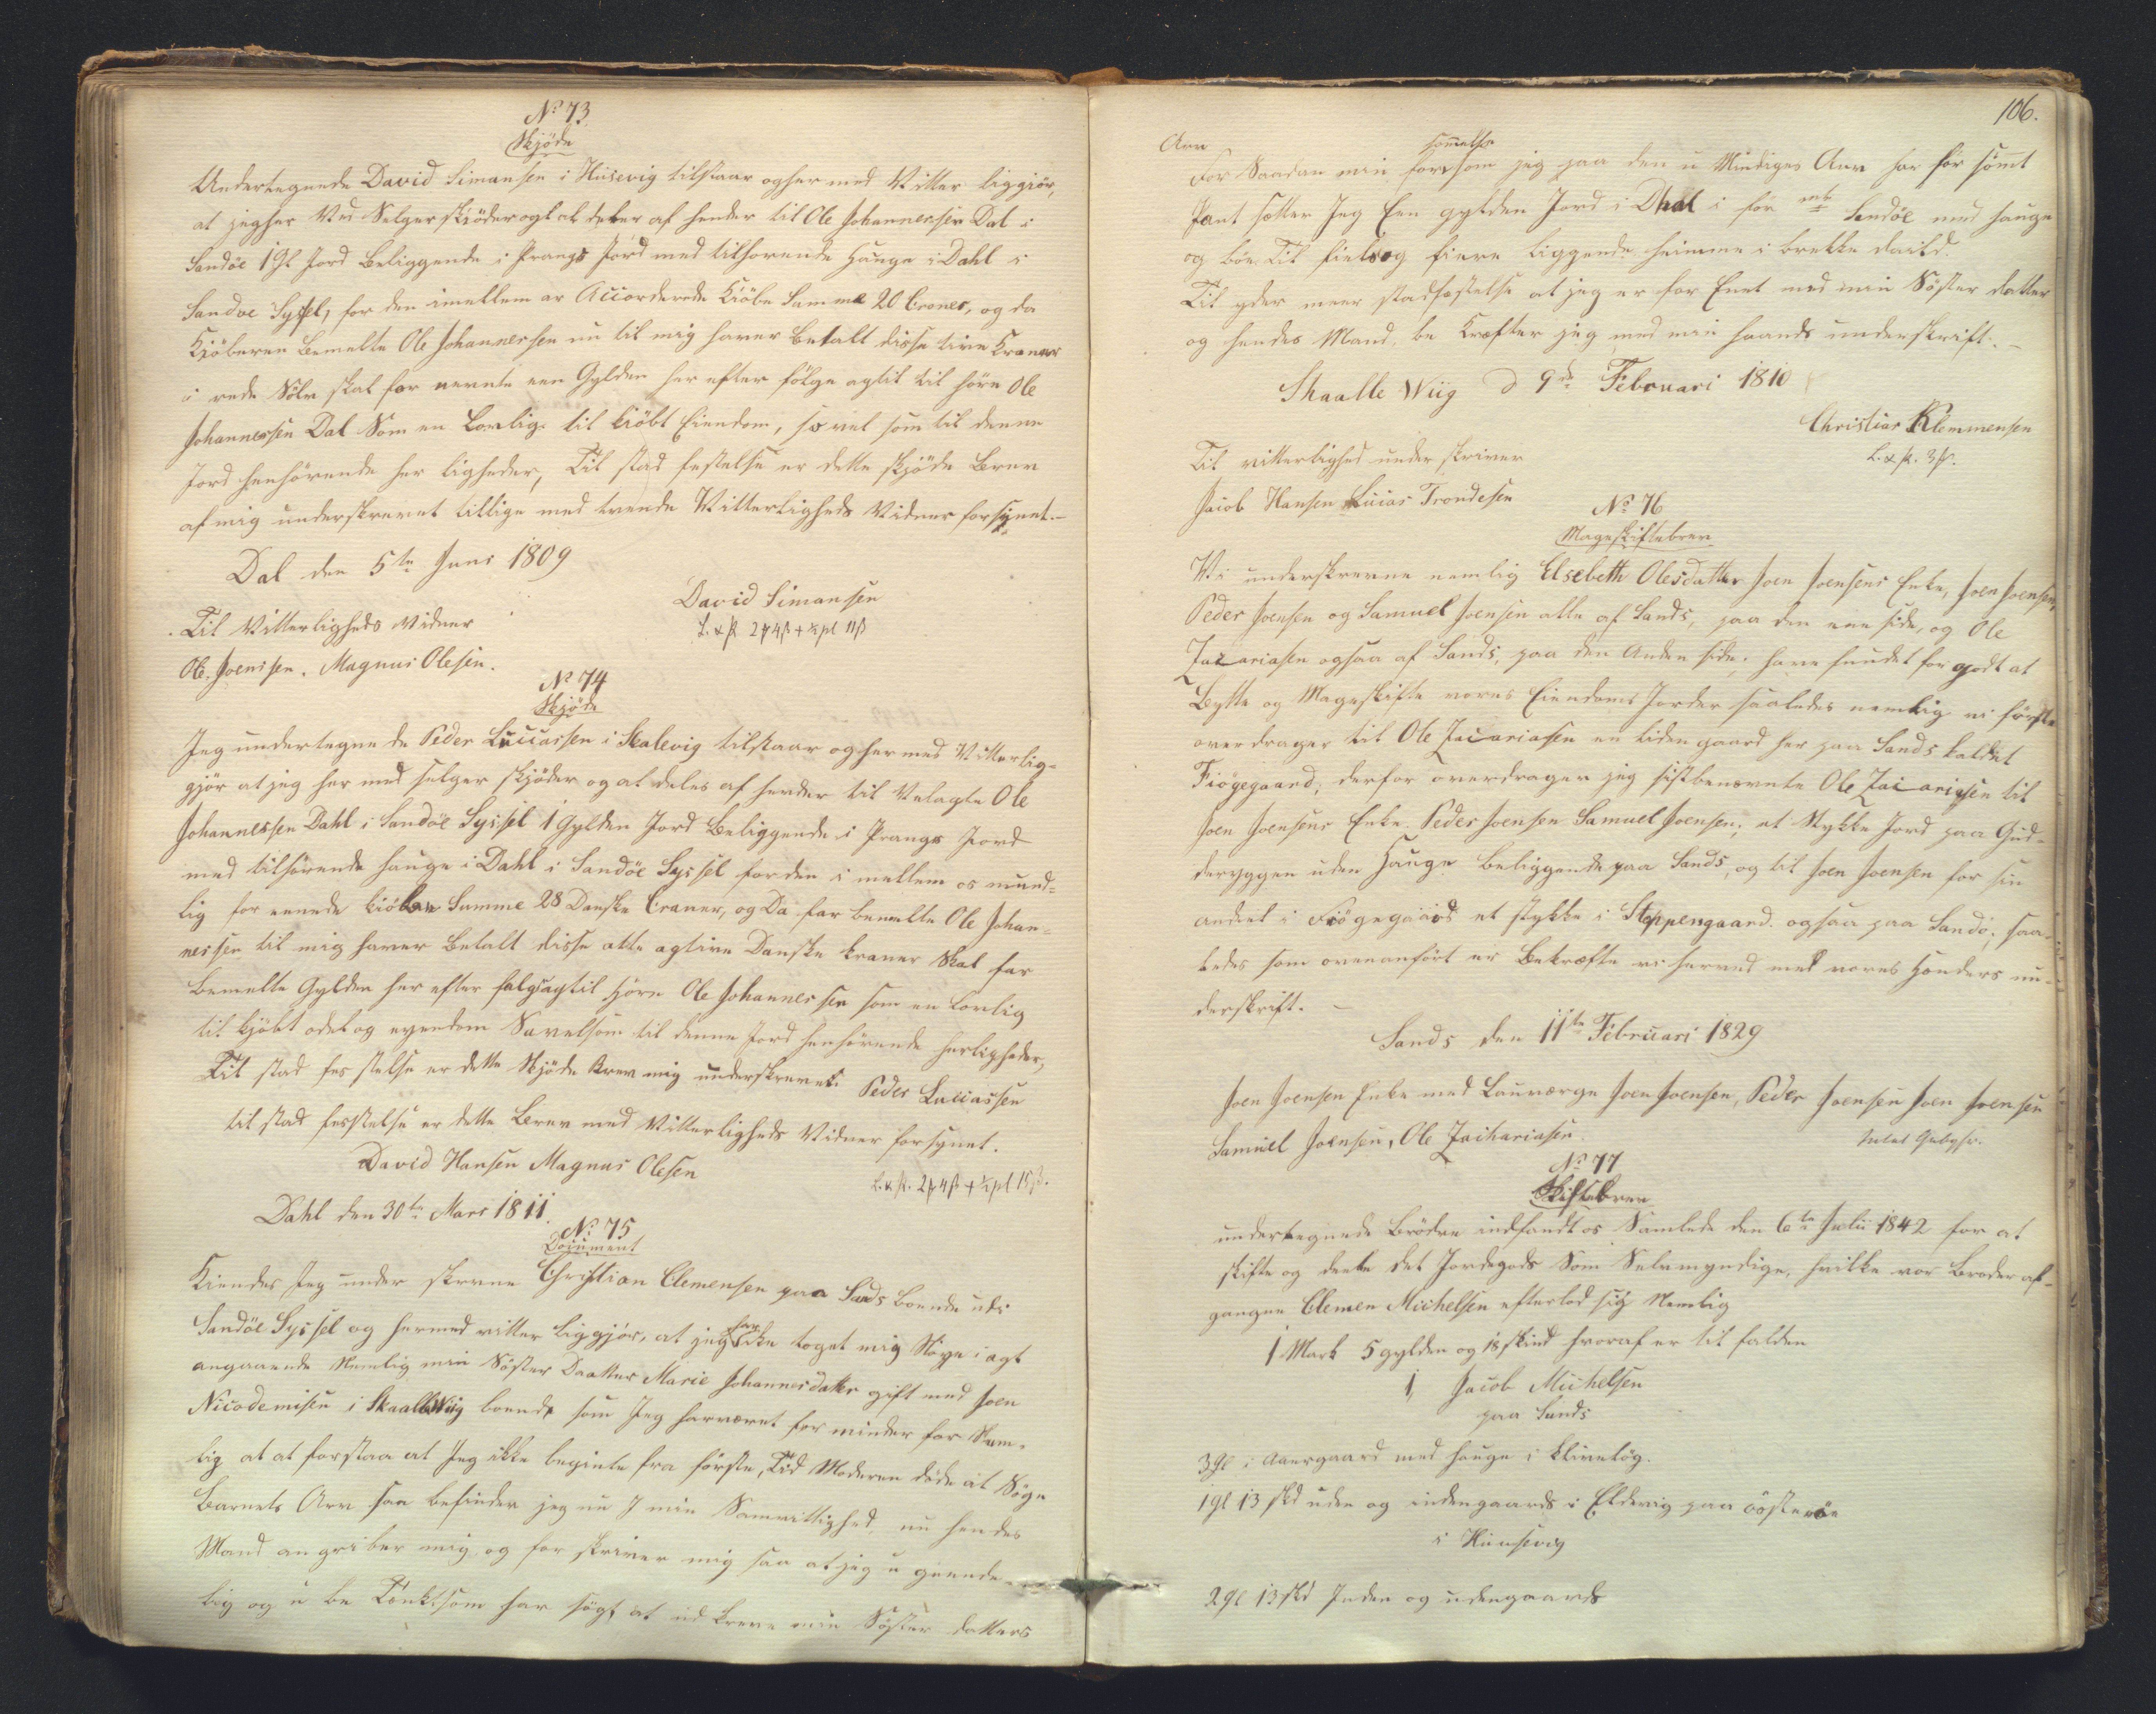 No 73
Skjöde
Undertegnede David Simansen i Húsevig tilstaar og her med Vitter liggjör,
at jeg her ved Selger skiöder og al deler af hender til Ole Johannessen Dal i
Sandöe 1 Gl Jord Beliggende i Prangs Jord med tilhorende Hauge i Dahl i
Sandoe Syssel, for den imellem os Accorderede Kiöbe Summe 20 Croner, og da
Kiöberen Bemelte Ole Johannessen nu til mig haver betalt disse tive Kroner
i rede Sölv skal for nevnte een Gylden her efter fölge og til til höre Ole
Johannessen Dal Som en Lovlig til kiöbt Eiendom, so vel som til denne
Jord henhörende her ligheder, Til stad festelse er dette skjöde Brev
af mig underskrevet tillige med tvende Vitterligheds Vidner forsynet.-
Dal den 5te Juni 1809
David Simansen
Til Vitterligheds Vidner
L. & R. 2 4ß + ½pl 11ß
Ole Joensen. Magnus Olesen.
No 74
Skjöde
Jeg undertegnede Peder Luccassen i Skalevig tilstaar og her med Vitterlig-
gjör at jeg her med selger skjöder og al deles af hender til Velagte Ole
Johannessen Dahl i Sandöe Syssel 1 Gylden Jord Beliggende i Prangs Jord
med tilhörende hauge i Dahl i Sandöe Syssel for den i mellem os mund-
lig for eenede kiöben Summe 28 Danske Croner, og Da for bemelte Ole Johan-
nessen til mig haver Betalt disse otte og tive Danske kroner Skal for
bemelte Gylden her efter folge og til höre Ole Johannessen som en Lovlig
til kjöbt odel og eyendom Savelsom til denne Jord henhörende herligheder,
Til stad fes stelse er dette Skjöde brev mig underskrevet. Peder Luccassen
til stad fesstelse er dette Brev med Vitterligheds Vidner forsynet.
David Hansen Magnus Olesen
L. & R. 2 4ß + ½pl 15ß.
Dahl den 30te Mars 1811.
No 75
Document
Kiendes Jeg under skrevne Christian Clemensen paa Sands boende udi
Sandöe Syssel og hermed vitter liggjör, at jeg har icke toget mig Nöye i agt
angaaende Nemlig min Söster Daatter Marie Johannesdatter gift med Joen
Nicodemisen i Skaalle Wiig boende som Jeg har været for minder for Nem-
lig at at forstaa at Jeg ikke begiente fra förste, Tid Moderen döde at Söge
Barnets Arv saa befinder jeg nu I min Samvittighed, nu hendes
Mand angriber mig og for skriver mig saa at jeg u grunde-
lig og u be Tænksom har sögt at ud kreve min Söster datters
106.
Arv
For Saadan min forsömmelse som jeg paa den u Mindiges Arv har for sömt
Pant setter Jeg Een gylden Jord i Dhal i for mte Sandöe med hauge
og böe Til fields og fiere liggende heimme i brekke deild.
Til yder meer stadfæstelse at jeg er for Enet med min Söster datter
og hendes Mand, be Kræfter jeg med min haands underskrift.-
Skaalle Wiig d 9de Februari 1810
Christian Klemmensen
L. & R. 3ß.
Til vitterlighed under skriver
Jacob Hansen Lucas Trondesen
No 76
Mageskiftebrev
Vi underskrevne nemlig Elsebeth Olesdatter Joen Joensens Enke, Joen Joensen,
Peder Joensen og Samuel Joensen alle af Sands, paa den ene side, og Ole
Zacariasen ogsaa af Sands, paa den Anden side; have fundet for godt at
Bytte og Mageskifte vores Eiendoms Jorder saaledes nemlig vi förste
overdrager til Ole Zacariasen en liden gaard her paa Sands kaldet
Fiögegaard; derfor overdrager jeg sistbenævnte Ole Zacariasen til
Joen Joensens Enke. Peder Joensen Samuel Joensen; et Stykke Jord paa Gud-
deryggen uden Hauge beliggende paa Sands, og til Joen Joensen for sin
andeel i Fiögegaard et stykke i Steppengaard. ogsaa paa Sandö; saa-
ledes som ovenanfört er bekræfte vi herved med vores Hænders un-
derskrift.-
Sands den 11te Februari 1829
Joen Joensen Enke med Lauværge Joen Joensen, Peder Joensen Joen Joensen
Samuel Joensen, Ole Zachariasen.
Intet Gebyhr.
No 77
Skiftebrev
undertegnede Brödre indfandt os Samlede den 6te Julii 1842 for at
skifte og deele det Jordegods Som Selvmyndige, hvilke vor Broder af-
gangne Clemen Michelsen efterlod sig Nemlig
1 Mark 5 gylden og 18 skind hvoraf er til falden
1, Jacob Michelsen
paa Sands
3 Gl i Aaergaard med hauge i Klivelög.
1 gl 13 skd uden og indengaards i Eldevig paa Österöe
i Húusevig
2 gl 13 skd Inden og udengaards